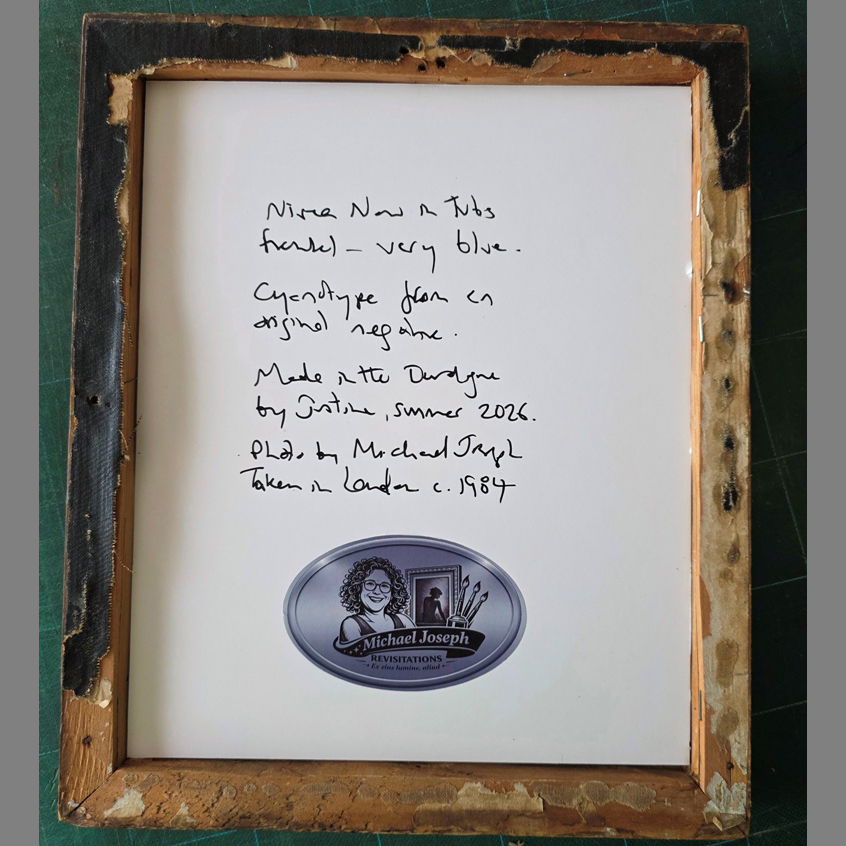 Nivea Now in Tubs
frontal – very blue.
Cyanotype from an
original negative.
Made in the Dordogne
by Justine, summer 2026.
Photo by Michael Joseph
Taken in London c. 1984
Michael Joseph
REVISITATIONS
Ex eius lumine, aliud